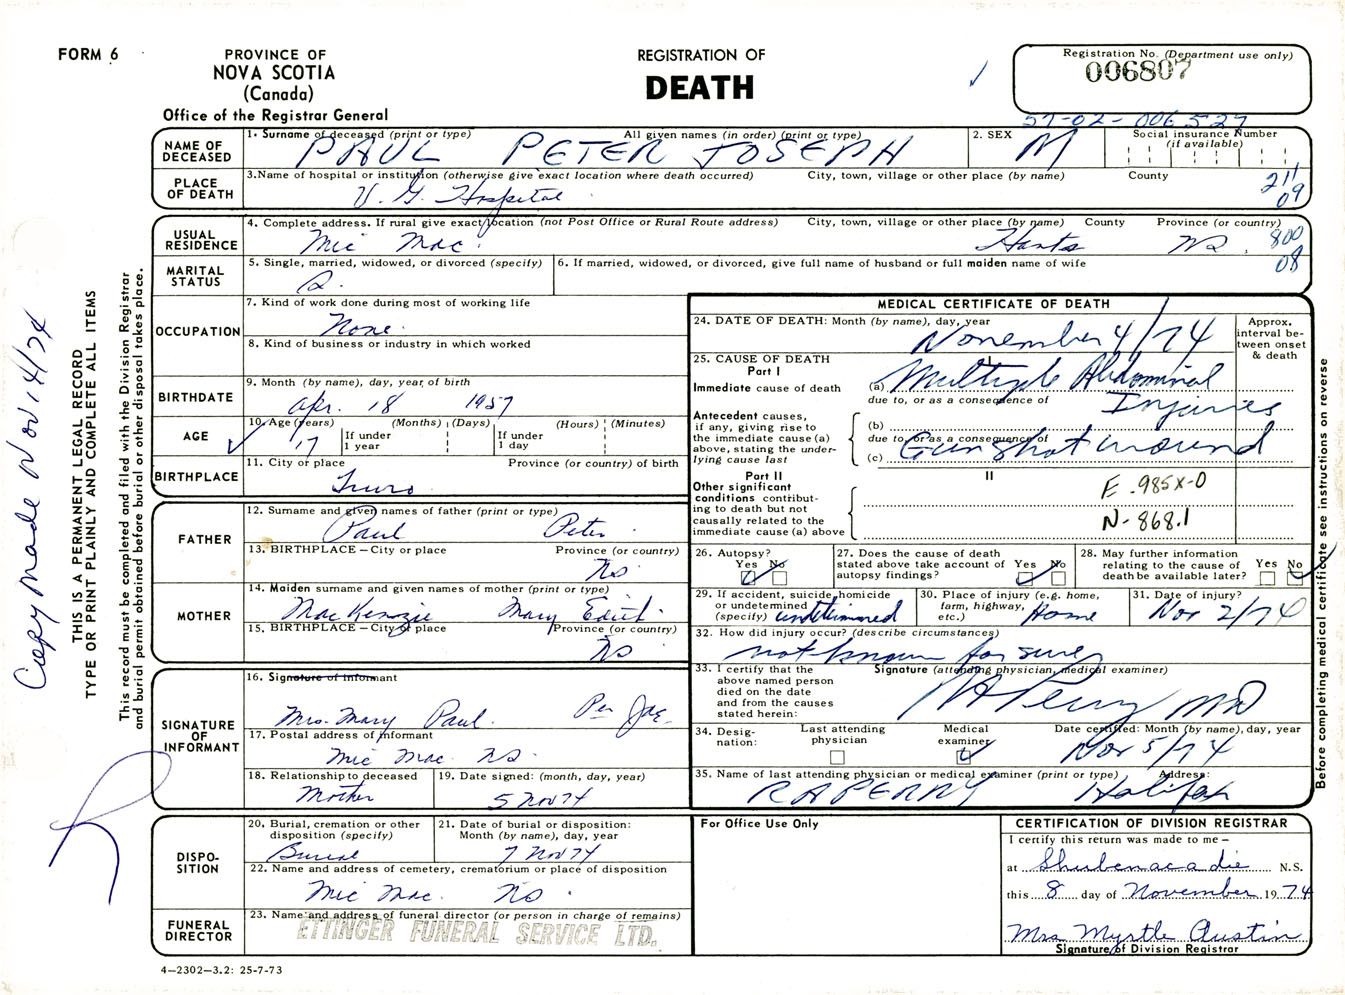 FORM 6
PROVINCE OF
NOVA SCOTIA
(Canada)
Office of the Registrar General
REGISTRATION OF
DEATH
Registration No. (Department use only)
006807
57-02-006527
NAME OF DECEASED
1. Surname of deceased (print or type) All given names (in order) (print or type)
PAUL PETER JOSEPH
2. SEX
M
Social insurance Number
(if available)
PLACE OF DEATH
3. Name of hospital or institution (otherwise give exact location where death occurred) City, town, village or other place (by name) County
V. G. Hospital
211
09
USUAL RESIDENCE
4. Complete address. If rural give exact location (not Post Office or Rural Route address) City, town, village or other place (by name) County Province (or country)
Mic Mac. Hants NS.
800
08
MARITAL STATUS
5. Single, married, widowed, or divorced (specify)
S.
6. If married, widowed, or divorced, give full name of husband or full maiden name of wife
OCCUPATION
7. Kind of work done during most of working life
None.
8. Kind of business or industry in which worked
BIRTHDATE
9. Month (by name), day, year of birth
Apr. 18 1957
AGE
10. Age (years) (Months) (Days) (Hours) (Minutes)
17
If under
1 year
If under
1 day
BIRTHPLACE
11. City or place Province (or country) of birth
Truro
FATHER
12. Surname and given names of father (print or type)
Paul Peter
13. BIRTHPLACE – City or place Province (or country)
NS
MOTHER
14. Maiden surname and given names of mother (print or type)
MacKenzie Mary Edith
15. BIRTHPLACE – City or place Province (or country)
NS
SIGNATURE OF INFORMANT
16. Signature of informant
Mrs. Mary Paul. Per
17. Postal address of informant
Mic Mac NS.
18. Relationship to deceased
Mother
19. Date signed: (month, day, year)
5 Nov 74
DISPO-
SITION
20. Burial, cremation or other
disposition (specify)
Burial
21. Date of burial or disposition:
Month (by name), day, year
7 Nov 74
22. Name and address of cemetery, crematorium or place of disposition
Mic Mac. NS.
FUNERAL DIRECTOR
23. Name and address of funeral director (or person in charge of remains)
ETTINGER FUNERAL SERVICE LTD.
4—2302—3.2: 25-7-73
MEDICAL CERTIFICATE OF DEATH
24. DATE OF DEATH: Month (by name), day, year
November 4/74
Approx.
interval be-
tween onset
& death
25. CAUSE OF DEATH
Part I
Immediate cause of death
(a) Multiple Abdominal
due to, or as a consequence of
Injuries
Antecedent causes,
if any, giving rise to
the immediate cause (a)
above, stating the under-
lying cause last
(b)
due to, or as a consequence of
(c) Gunshot wound
Part II
II
Other significant
conditions contribut-
ing to death but not
causally related to the
immediate cause (a) above
E .985X-0
N-868.1
26. Autopsy?
Yes No
27. Does the cause of death
stated above take account of
autopsy findings?
Yes No
28. May further information
relating to the cause of
death be available later?
Yes No
29. If accident, suicide, homicide
or undetermined
(specify) undetermined
30. Place of injury (e.g. home,
farm, highway,
etc.) Home
31. Date of injury?
Nov 2/74
32. How did injury occur? (describe circumstances)
not known for sure
33. I certify that the
above named person
died on the date
and from the causes
stated herein:
Signature (attending physician, medical examiner)
RA Perry MD
34. Desig-
nation:
Last attending
physician
Medical
examiner
Date certified: Month (by name), day, year
Nov 5/74
35. Name of last attending physician or medical examiner (print or type) Address:
RA PERRY Halifax
For Office Use Only
CERTIFICATION OF DIVISION REGISTRAR
I certify this return was made to me –
at Shubenacadie N.S.
this 8 day of November 1974
Mrs Myrtle Austin
Signature of Division Registrar
Copy made Nov 14/74
THIS IS A PERMANENT LEGAL RECORD
TYPE OR PRINT PLAINLY AND COMPLETE ALL ITEMS
This record must be completed and filed with the Division Registrar
and burial permit obtained before burial or other disposal takes place.
Before completing medical certificate see instructions on reverse